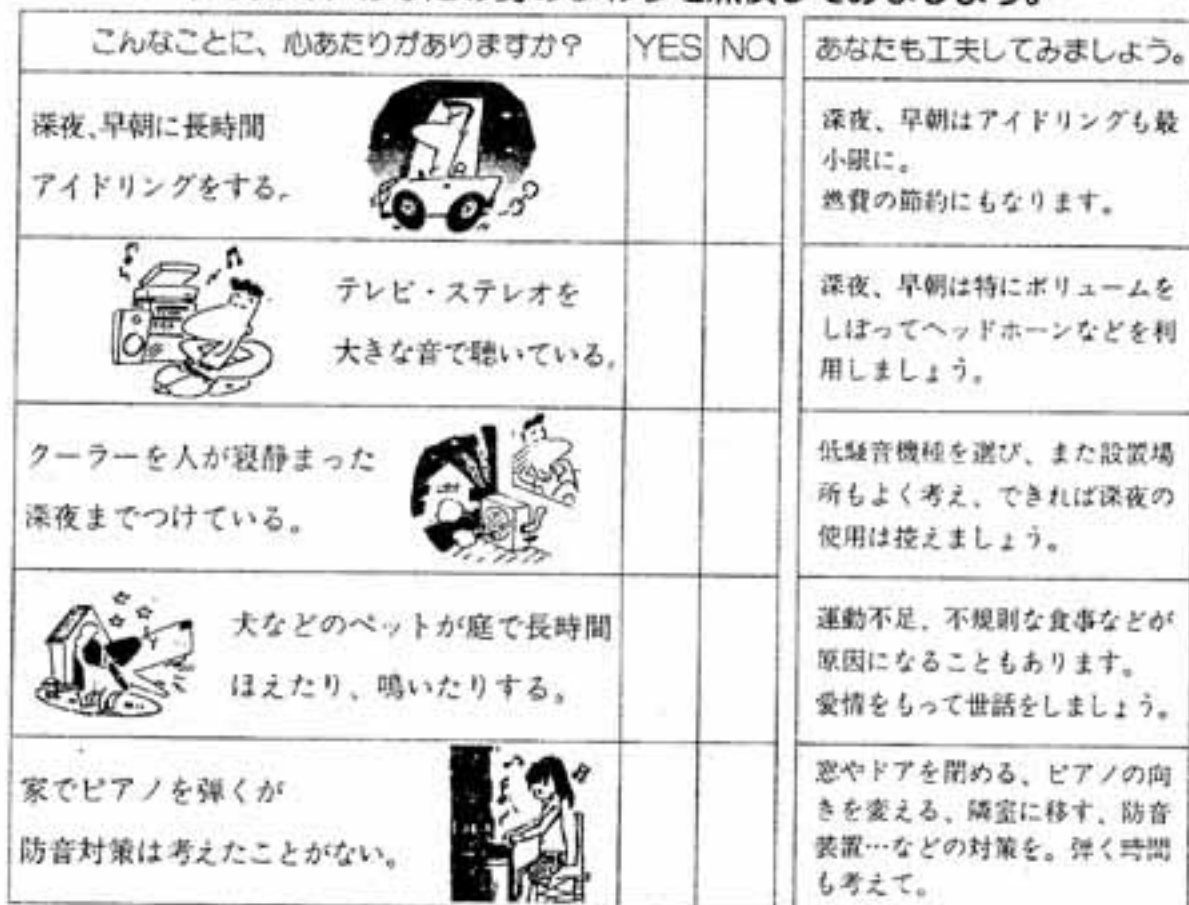 してみましょう。
こんなことに、心あたりがありますか？ YES NO
あなたも工夫してみましょう。
深夜、早朝に長時間
アイドリングをする。
深夜、早朝はアイドリングも最
小限に。
燃費の節約にもなります。
テレビ・ステレオを
大きな音で聴いている。
深夜、早朝は特にボリュームを
しぼってヘッドホーンなどを利
用しましょう。
クーラーを人が寝静まった
深夜までつけている。
低騒音機種を選び、また設置場
所もよく考え、できれば深夜の
使用は控えましょう。
犬などのペットが庭で長時間
ほえたり、鳴いたりする。
運動不足、不規則な食事などが
原因になることもあります。
愛情をもって世話をしましょう。
家でピアノを弾くが
防音対策は考えたことがない。
窓やドアを閉める、ピアノの向
きを変える、隣室に移す、防音
装置…などの対策を。弾く時間
も考えて。